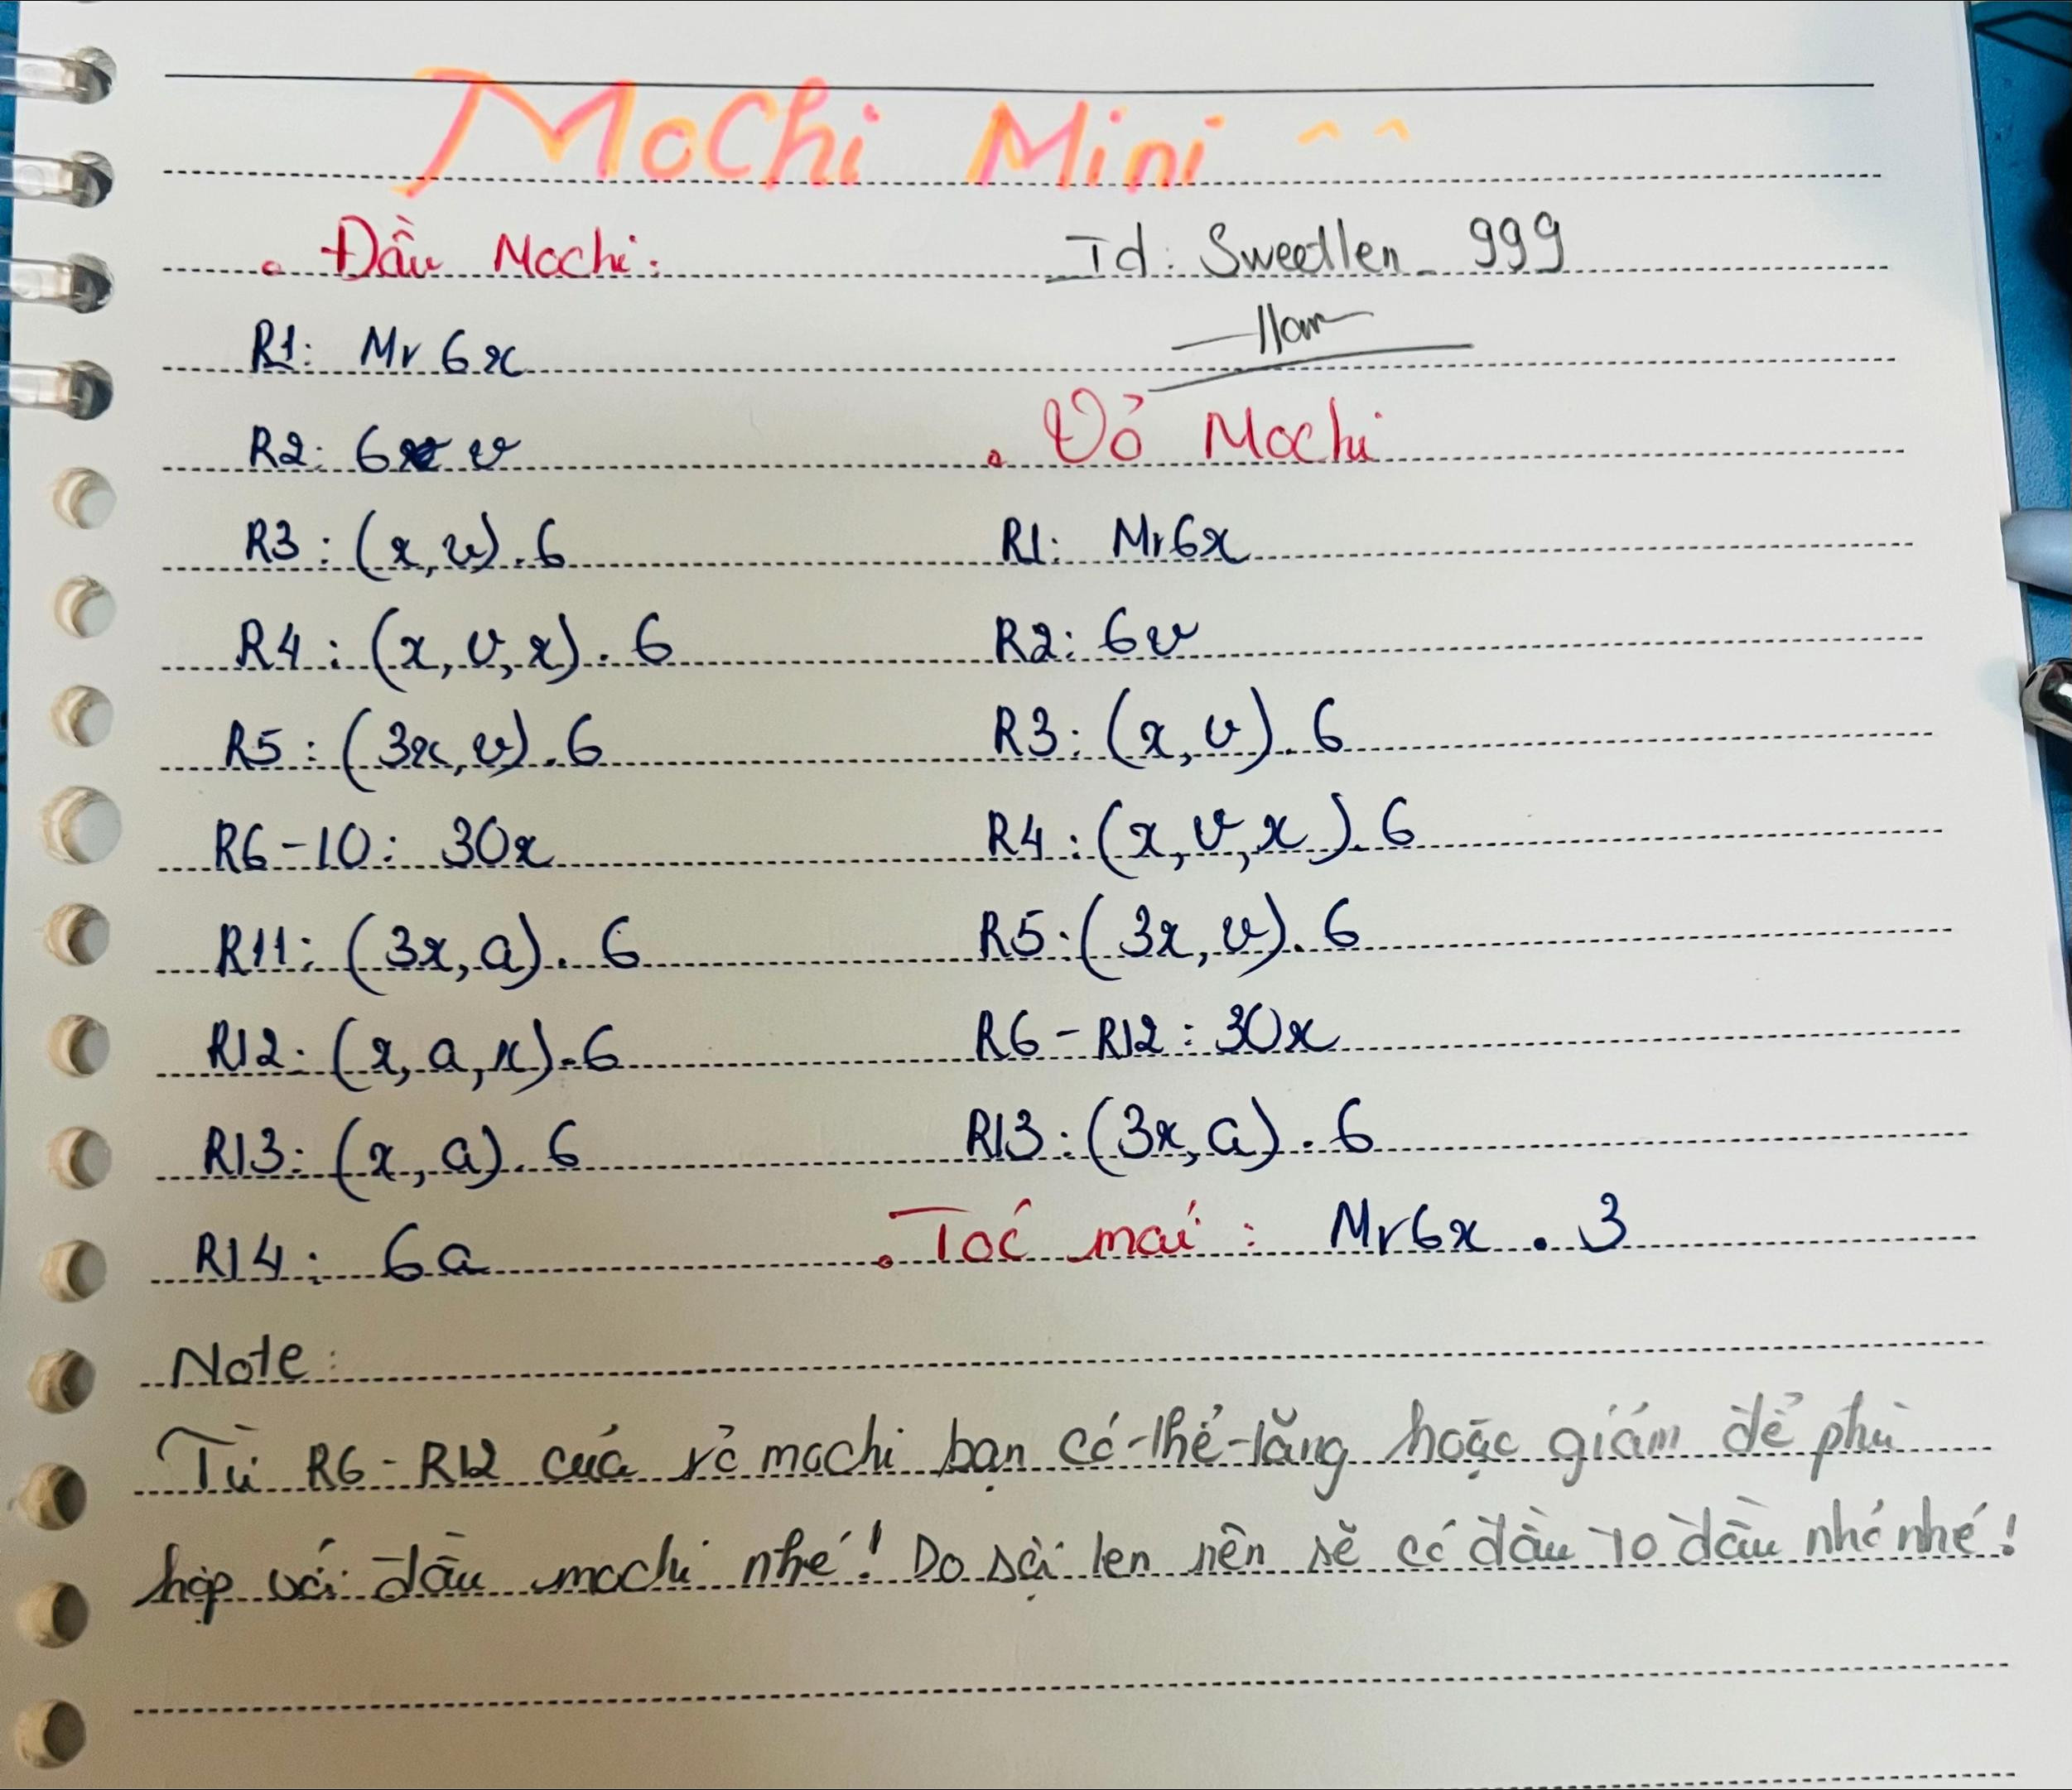 MoChi Mini ^^
. Đầu Mochi:
R1: Mr 6x
R2: 6 v
R3: (x, v) . 6
R4: (x, v, x) . 6
R5: (3x, v) . 6
R6-10: 30x
R11: (3x, a) . 6
R12: (x, a, x) . 6
R13: (x, a) . 6
R14: 6a
Id: Sweetlen_999
. Vỏ Mochi
R1: Mr6x
R2: 6v
R3: (x, v) . 6
R4: (x, v, x) . 6
R5: (3x, v) . 6
R6-R12: 30x
R13: (3x, a) . 6
. Tóc mái: Mr6x . 3
Note:
Từ R6-R12 của vỏ mochi bạn có thể tăng hoặc giảm để phù
hợp với đầu mochi nhé! Do sợi len nên sẽ có đầu to đầu nhỏ nhé!